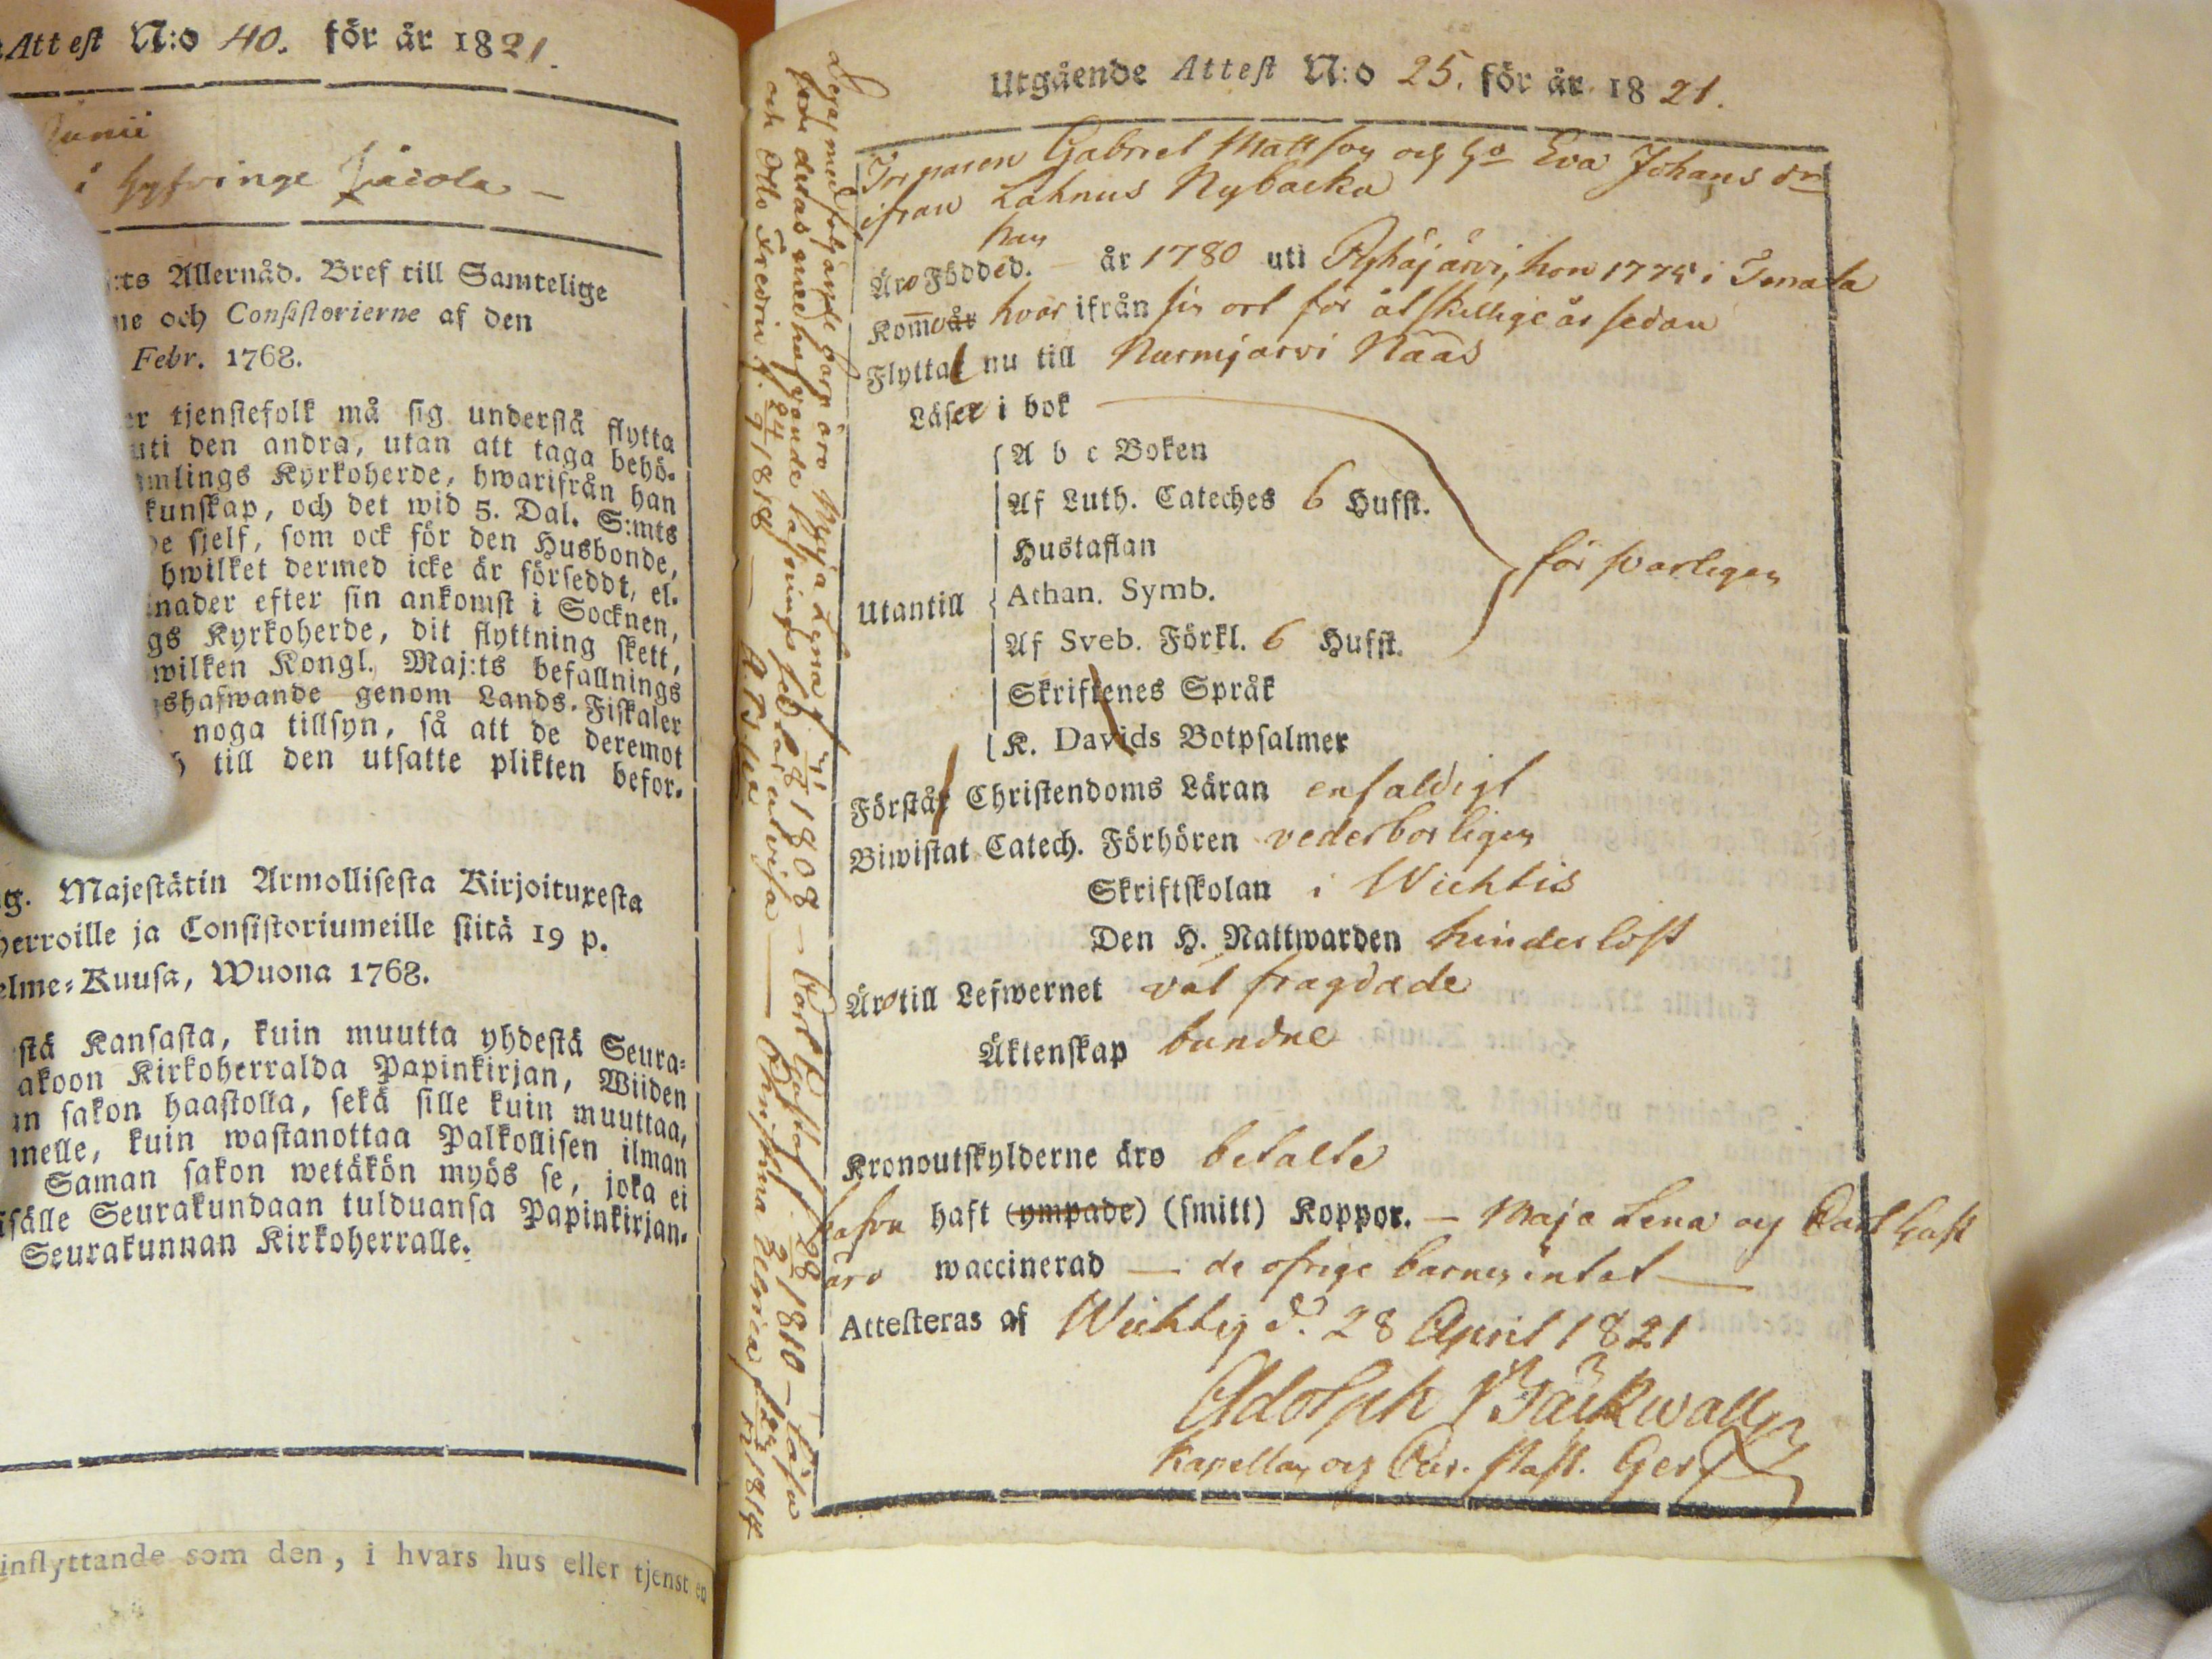 Attest N:o 40. för år 1821.
Junii
i Hyfvinge Jäcola
:ts Allernåd. Bref till Samtelige
ne och Consistorierne af den
Febr. 1768.
er tjenstefolk må sig understå flytta
uti den andra, utan att taga behö-
mlings Kyrkoherde, hwarifrån han
kunskap, och det wid 5. Dal. S:mts
e sjelf, som ock för den Husbonde,
hwilket dermed icke är försedt, el-
nader efter sin ankomst i Socknen,
gs Kyrkoherde, dit flyttning skett,
wilken Kongl. Maj:ts befallnings
shafwande genom Lands-Fiskaler
noga tillsyn, så att de deremot
till den utsatte plikten befor-
g. Majestätin Armollisesta Kirjoituxesta
herroille ja Consistoriumeille siitä 19 p.
elme-Kuusa, Wuona 1768.
stä Kansasta, kuin muutta yhdestä Seura-
akoon Kirkoherralda Papinkirjan, Wiiden
an sakon haastolla, sekä sille kuin muuttaa,
nnelle, kuin wastanottaa Palkollisen ilman
Saman sakon wetäkön myös se, joka ei
isälle Seurakundaan tulduansa Papinkirjan-
Seurakunnan Kirkoherralle.
inflyttande som den, i hvars hus eller tjenst en
Utgående Attest N:o 25. för år 1821.
Gabriel Mattson och Ho Eva Johans dr
ifrån Lahnus Nybacka
han
Äro Födded. — år 1780 uti Pyhäjärvi, hon 1775 i
Komma hvar ifrån sin ort för åtskillige år sedan
Flytta nu till Nurmijärvi Nääs
Läser i bok
A b c Boken
Af Luth. Cateches 6 Hufst.
Hustaflan
Utantill Athan. Symb. försvarligen
Af Sveb. Förkl. 6 Hufst.
Skriftenes Språk
K. Davids Botpsalmer
Förstår Christendoms Läran enfaldigt
Biwistat Catech. Förhören vederborligen
Skriftskolan i Wichtis
Den H. Nattwarden hinderlöst
Äro till Lefwernet väl fragdade
Äktenskap bundne
Kronoutskylderne äro betalte
hafva haft (ympade) (smitt) Koppor. — Maja Lena och Carl Gust
äro waccinerad — de öfrige barnen intet —
Attesteras af Wichtis d. 28 April 1821
Adolph Bäckwall
Kapellan och
Deras medföljande barn äro Maja Lena f. 1808 — Carl Gustaf f. 28 1810 —
och Otto Fredric f. 24/9 1818 — Christina f. 1814